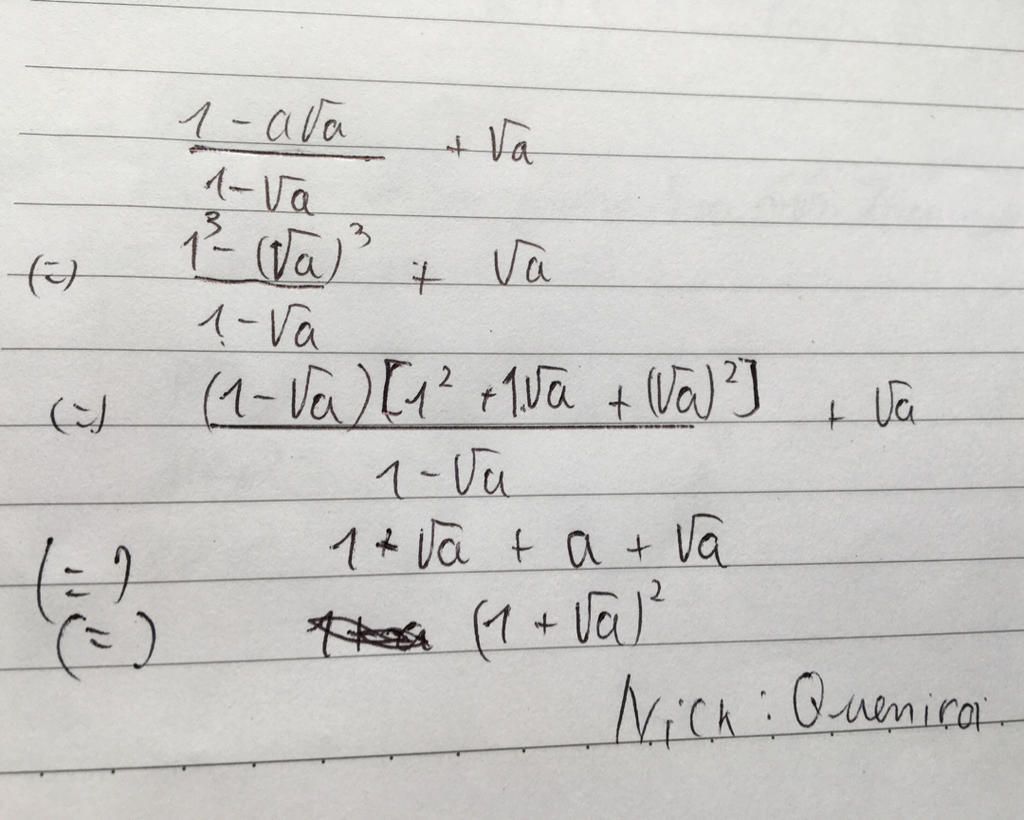 1 - a√a
+ √a
1 - √a
(=) 1³ - (√a)³ + √a
1 - √a
(=) (1 - √a)[1² + 1.√a + (√a)²] + √a
1 - √a
(=) 1 + √a + a + √a
(=) (1 + √a)²
Nick : Queniroi